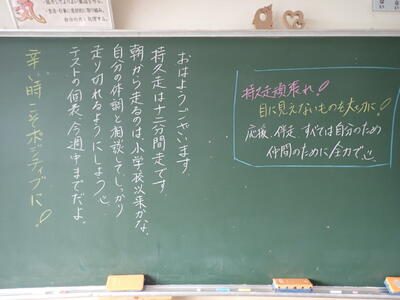 持久走頑張れ!
目に見えないものを大切に!
応援、伴走、すべては自分のため
仲間のために全力で
おはようございます。
持久走は十二分間走です。
朝から走るのは小学校以来かな。
自分の体調と相談して、しっかり
走り切れるようにしましょう
テストの個表、今週中までだよ。
辛い時こそポジティブに!